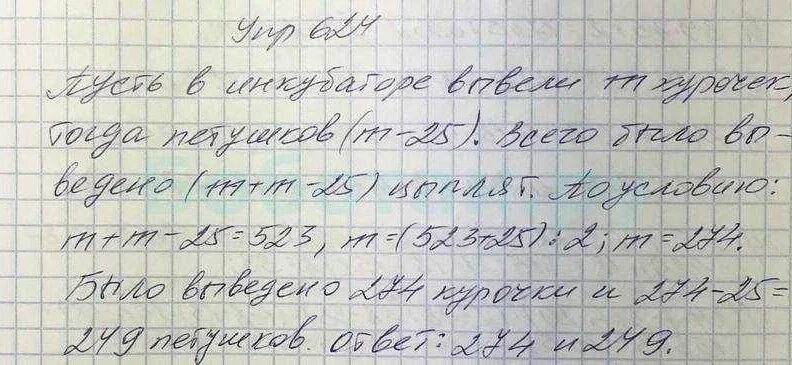 Упр 624
Пусть в инкубаторе вывели m курочек,
тогда петушков (m-25). Всего было вы-
ведено (m+m-25) цыплят. По условию:
m+m-25=523, m=(523+25):2; m=274.
Было выведено 274 курочки и 274-25=
249 петушков. Ответ: 274 и 249.